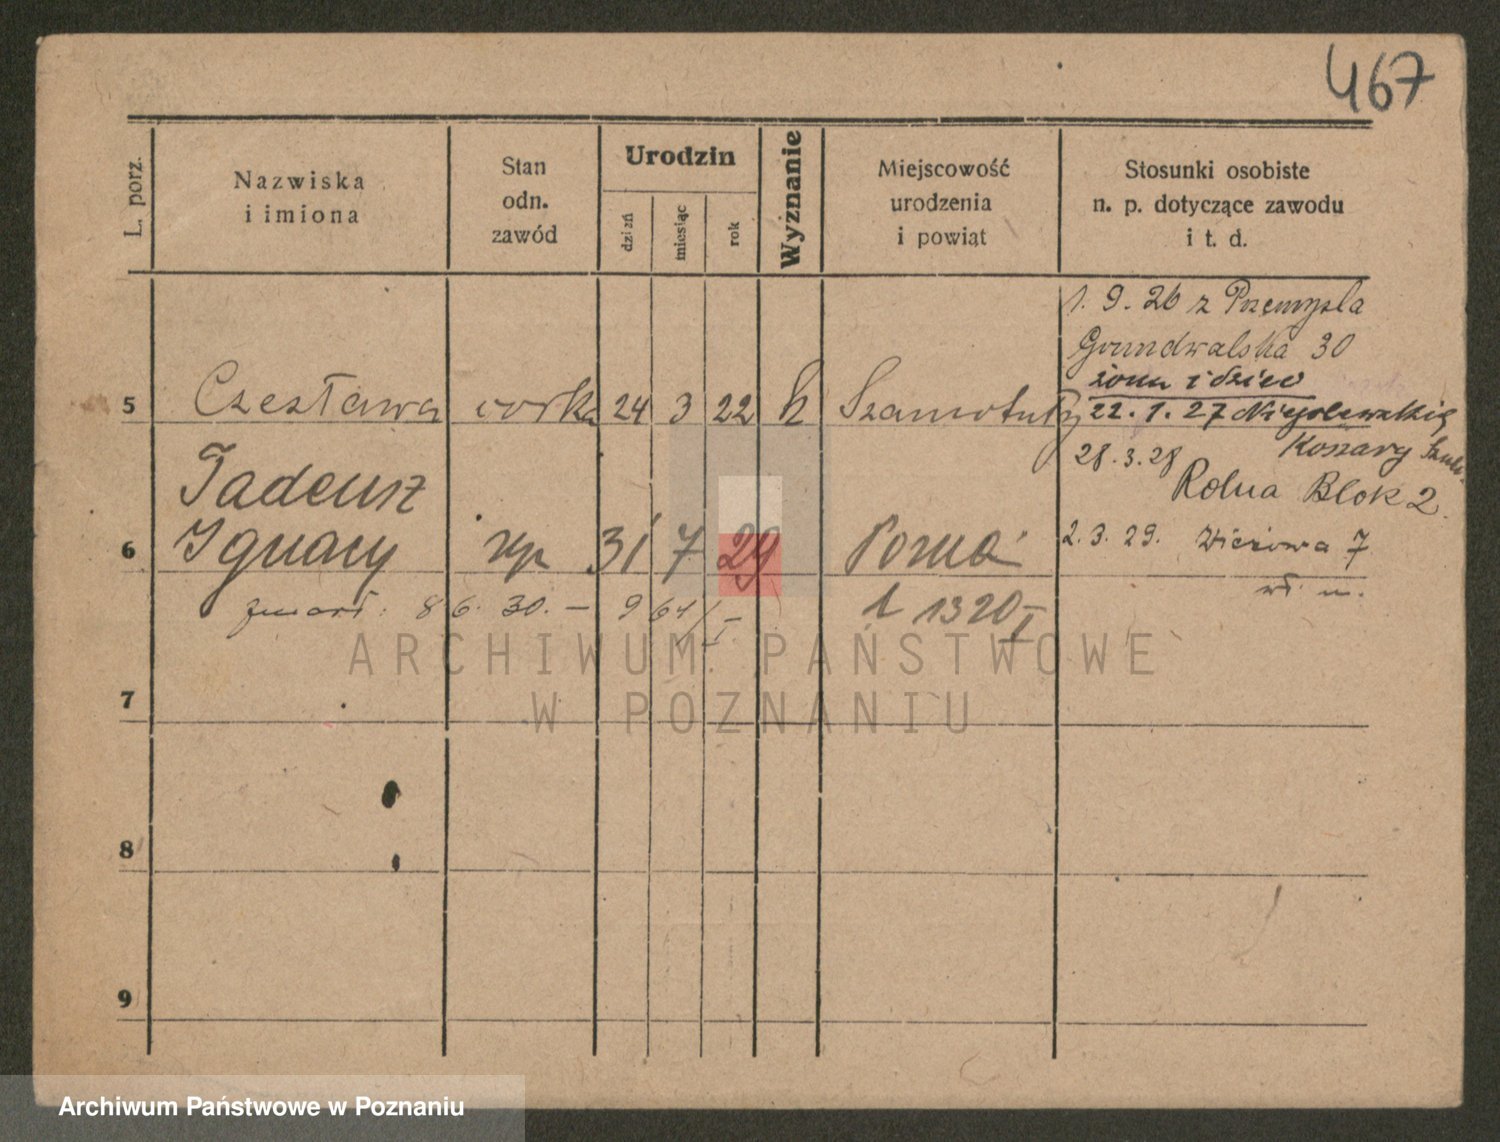 467
L. porz.
Nazwiska
i imiona
Stan
odn.
zawód
Urodzin
dzień
miesiąc
rok
Wyżnanie
Miejscowość
urodzenia
i powiat
Stosunki osobiste
n. p. dotyczące zawodu
i t. d.
1. 9. 26 z Przemyśla
Grundwalska 30
żona i dziec
5 Czesława córka 24 3 22 k Szamotuły
22. 1. 27 Niegolewskich
Koszary
28. 3. 28
Rolna Blok 2.
Tadeusz
6 Ignacy syn 31 7 29 Pozna
2. 3. 29. Wierzowa 7
wł. m.
zmarł: 8 6. 30. — 964/I.
1 1320 I
7
8
9
ARCHIWUM PAŃSTWOWE
W POZNANIU
Archiwum Państwowe w Poznaniu